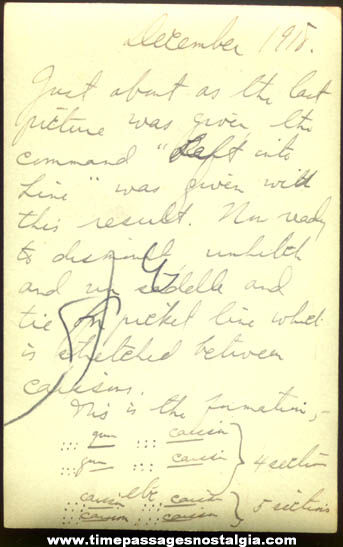 December 1918.
Just about as the last
picture was given the
command "Left into
Line" was given with
this result. Now ready
to dismount unhitch
and un saddle and
tie on picket line which
is stretched between
caissons.
This is the formation,-
gun caisson
gun caisson
4 section
caisson etc caisson
caisson caisson
5 sections
www.timepassagesnostalgia.com